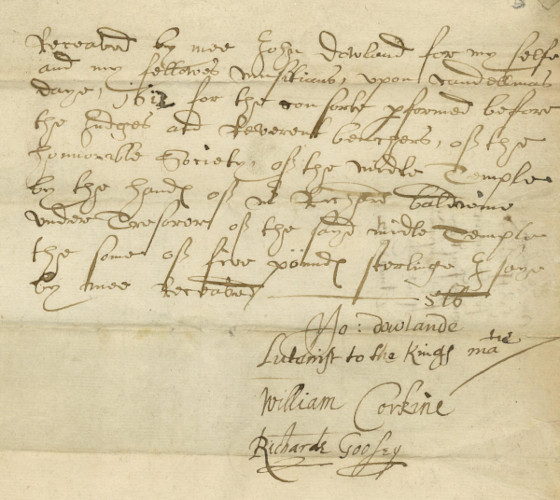 Receaved by mee John Dowland for my selfe
and my fellowes musitians, upon Candellmas
daye, 1612 for the consorte pformed before
the Judges and Reverent benchers, of the
Honnorable Society, of the midle Temple
by the hands of mr Richard baldwine
under Tresorer of the sayd midle Temple
the some of five pounds sterlinge I saye
by mee Receaved 5lb
Jo: dowlande
Lutenist to the Kings matie
William Corkine
Richarde Goosey